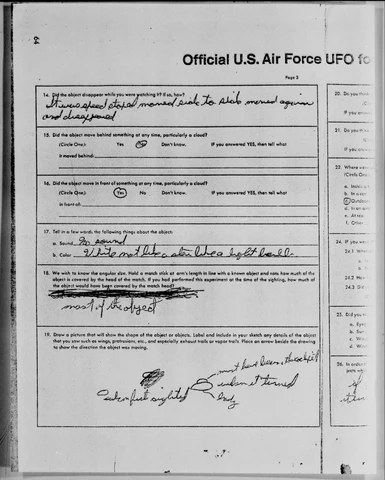 64
Official U.S. Air Force UFO fo
Page 3
14. Did the object disappear while you were watching it? If so, how?
It was speed stoped moved side to side moved again
and disappeared
15. Did the object move behind something at any time, particularly a cloud?
(Circle One): Yes No Don't know. If you answered YES, then tell what
it moved behind:
16. Did the object move in front of something at any time, particularly a cloud?
(Circle One): Yes No Don't know. If you answered YES, then tell what
in front of:
17. Tell in a few words the following things about the object:
a. Sound No sound
b. Color White not like a star like a light
18. We wish to know the angular size. Hold a match stick at arm's length in line with a known object and note how much of the
object is covered by the head of the match. If you had performed this experiment at the time of the sighting, how much of
the object would have been covered by the match head?
most of the object
19. Draw a picture that will show the shape of the object or objects. Label and include in your sketch any details of the object
that you saw such as wings, protrusions, etc., and especially exhaust trails or vapor trails. Place an arrow beside the drawing
to show the direction the object was moving.
must have been
when it turned
first sighted
20. Do
If you
21. Do
If you
22. Where were
a. Insid
b. In co
d. In an
e. At sea
f. Other
24. If you
24.1 W
24.2 How
25. Did you
a. Eye
b. Sun
c. Win
d. Win